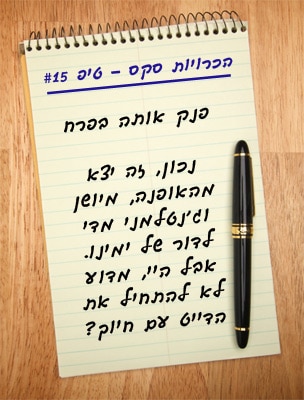 הכרויות סקס - טיפ 15#
פנק אותה בפרח
נכון, זה יצא
מהאופנה, מיושן
וג'נטלמני מדי
לדור של ימינו.
אבל היי, מדוע
לא להתחיל את
הדייט עם חיוך?